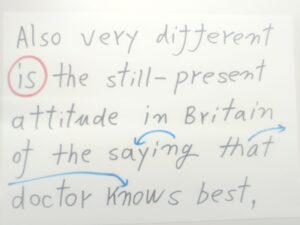 Also very different
is the still-present
attitude in Britain
of the saying that
doctor knows best,